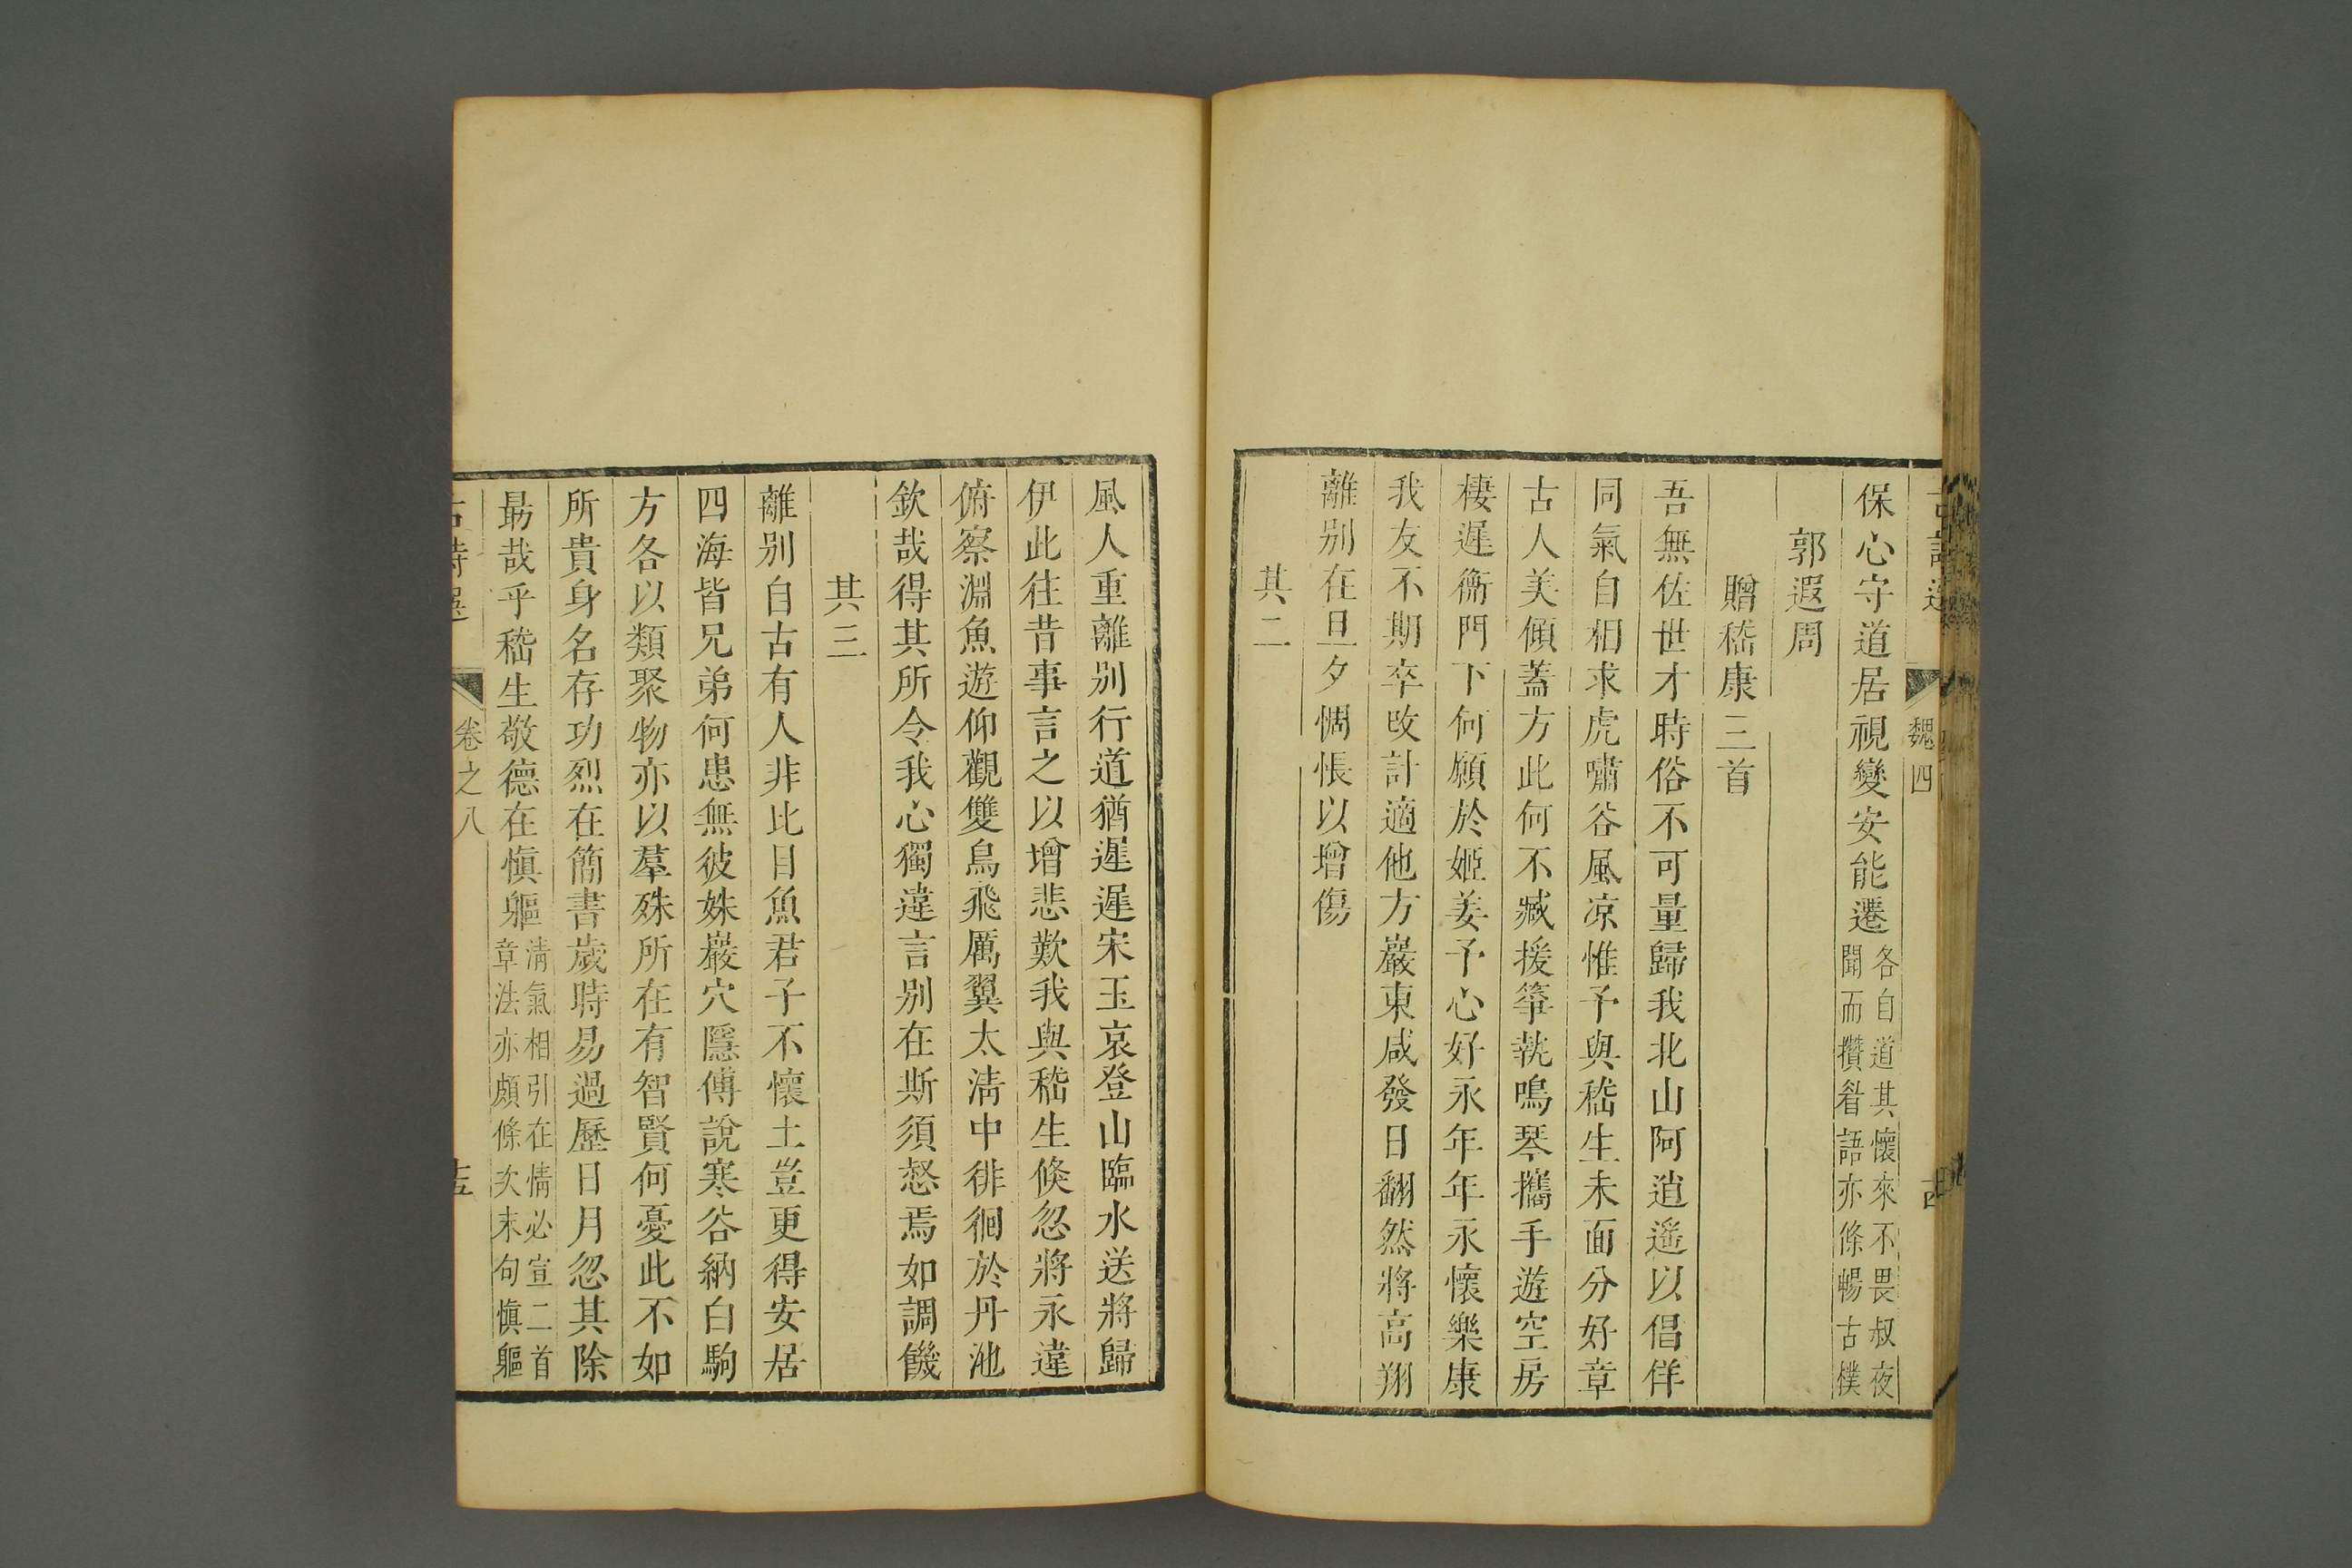 魏四
保心守道居視變安能遷
各自道其懷來不畏叔夜
聞而攢眉語亦條暢古樸
郭遐周
贈嵇康三首
吾無佐世才時俗不可量歸我北山阿逍遙以倡佯
同氣自相求虎嘯谷風凉惟予與嵇生未面分好章
古人美傾蓋方此何不臧援箏執鳴琴攜手遊空房
棲遲衡門下何願於姬姜予心好永年年永懷樂康
我友不期卒改計適他方嚴東咸發日翻然將高翔
離别在旦夕惆悵以增傷
其二
風人重離别行道猶遲遲宋玉哀登山臨水送將歸
伊此往昔事言之以增悲歎我與嵇生倏忽將永違
俯察淵魚遊仰觀雙鳥飛厲翼太清中徘徊於丹池
欽哉得其所令我心獨違言别在斯須惄焉如調饑
其三
離别自古有人非比目魚君子不懷土豈更得安居
四海皆兄弟何患無彼姝巖穴隱傅說寒谷納白駒
方各以類聚物亦以羣殊所在有智賢何憂此不如
所貴身名存功烈在簡書歲時易過歷日月忽其除
勗哉乎嵇生敬德在慎軀
清氣相引在情必宣二首
章法亦頗條次末句慎軀
古詩選
卷之八
十五